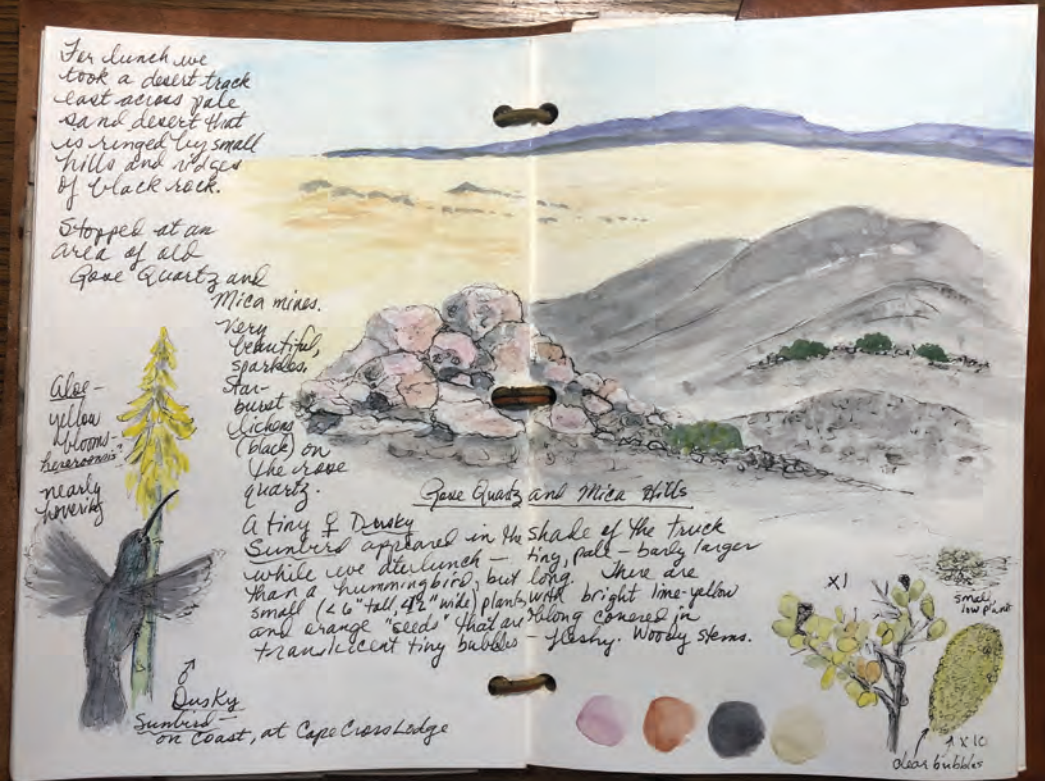 For lunch we
took a desert track
east across pale
sand desert that
is ringed by small
hills and ridges
of black rock.
Stopped at an
area of old
Rose Quartz and
Mica mines.
Very
beautiful,
sparkles.
Star-
burst
lichens
(black) on
the rose
quartz.
Aloe-
yellow
blooms-
hereroensis?
nearly
hovering
Rose Quartz and Mica Hills
A tiny ♀ Dusky
Sunbird appeared in the shade of the truck
while we ate lunch – tiny, pale – barely larger
than a hummingbird, but long. There are
small (< 6" tall, 42" wide) plants with bright lime-yellow
and orange "seeds" that are oblong covered in
translucent tiny bubbles – fleshy. Woody stems.
♂
Dusky
Sunbird –
on coast, at Cape Cross Lodge
x1
small,
low plant
x 10
clear bubbles